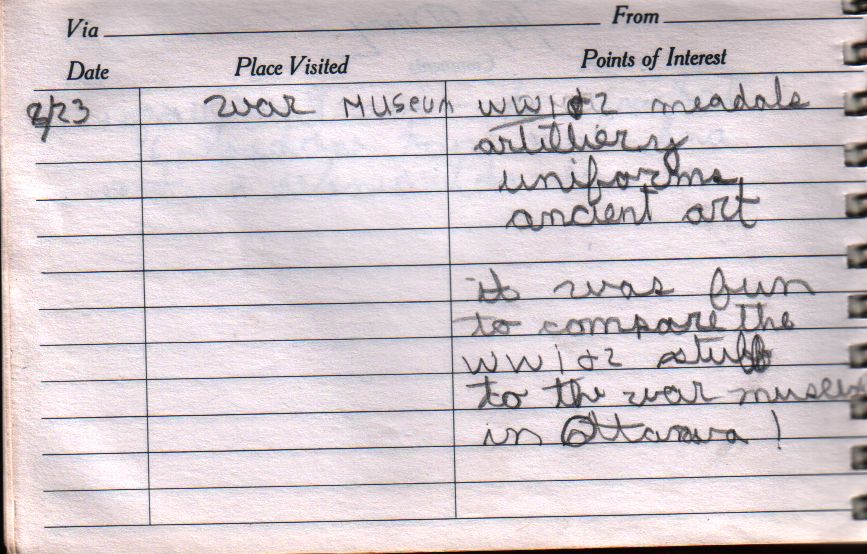 Via From
Date Place Visited Points of Interest
2/23 war Museum WW1&2 meadals
artilliery
uniforms
ancient art
it was fun
to compare the
WW1&2 stuff
to the war museum
in Ottawa!